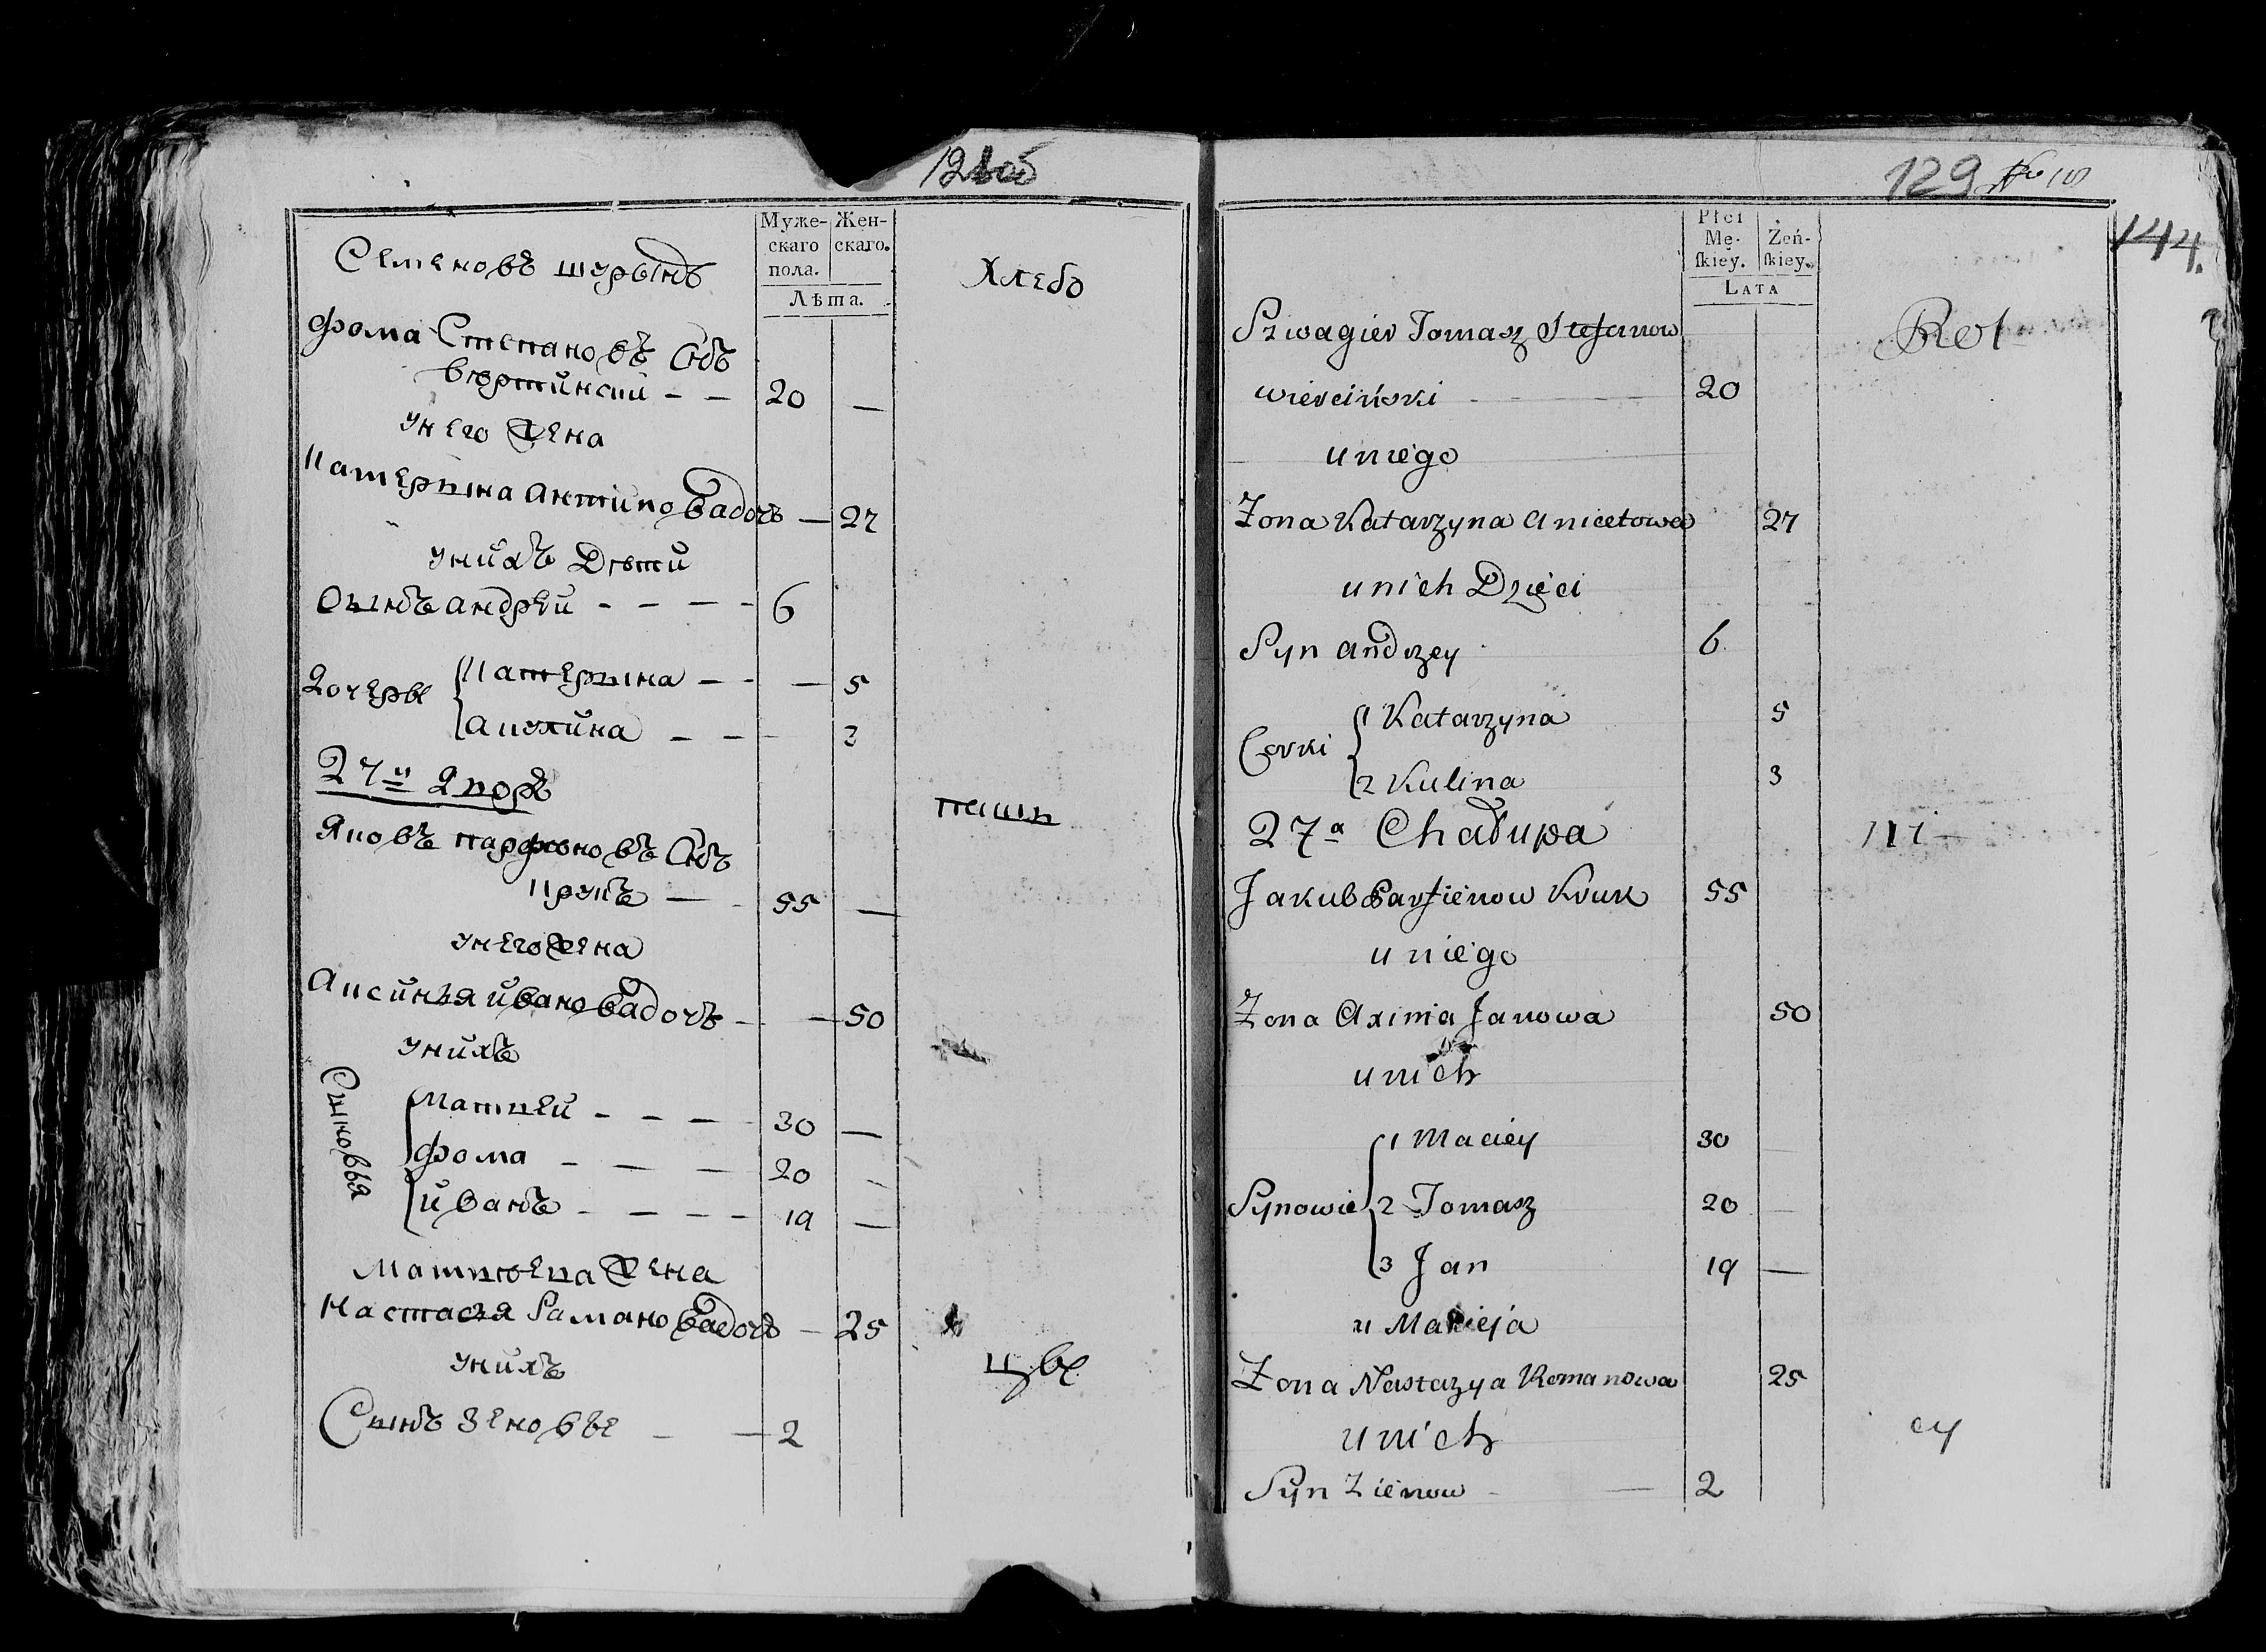 129 № 10
144.
Муже-
скаго
пола.
Жен-
скаго.
Лѣта.
Семеновъ шурынъ
Хлебо
Фома Степановъ Снъ
20 —
унего жена
Катерына Антиповадочъ — 27
унйхъ Дѣти
Сынъ андрей - - - - 6
Дочеры
Катерына - - — 5
Акулйна - - - 3
27й Дворъ
паши
Яковъ парфѣновъ Снъ
Крукъ — - 55 —
унегожена
Аксйнья йвановадочъ - — 50
унйхъ
Сыновья
Матвей - - - - 30 —
Фома - - - 20 -
йванъ - - - - 19 —
Матвѣева жена
Настасья Рамановадочъ — 25
унихъ
цве
Сынъ Зеновъе - — 2
Płci
Mę-
ſkiey.
Żeń-
ſkiey.
LATA
Szwagier Tomasz Stefanow
Rol
wierciński - 20
uniego
Żona Katarzyna anicetowa 27
unich Dzieci
Syn andrzey 6
Corki
1 Katarzyna 5
2 Kulina 3
27a Chałupa
Jakub Parfienow Kruk 55
uniego
Żona Axinia Janowa 50
unich
Synowie
1 Maciey 30
2 Tomasz 20
3 Jan 19 —
u Macieja
Żona Nastazya Romanowa 25
unich
Syn Zienow - — 2